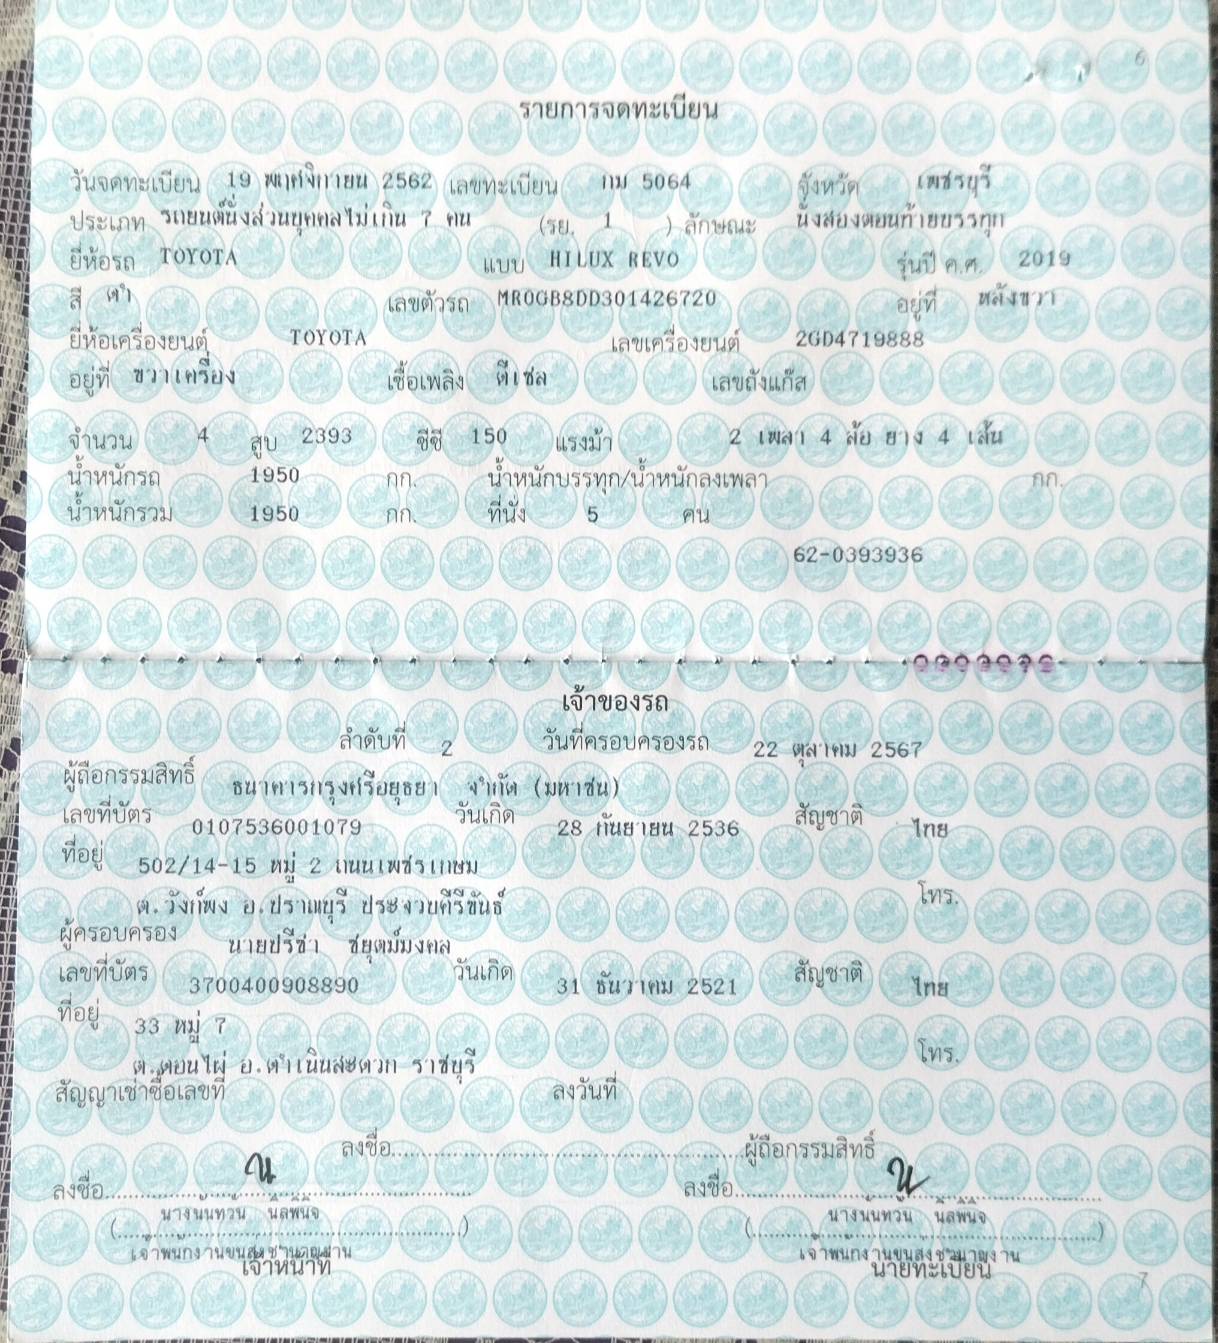 6
รายการจดทะเบียน
วันจดทะเบียน 19 พฤศจิกายน 2562 เลขทะเบียน กม 5064 จังหวัด เพชรบุรี
ประเภท รถยนต์นั่งส่วนบุคคลไม่เกิน 7 คน (รย. 1 ) ลักษณะ นั่งสองตอนท้ายบรรทุก
ยี่ห้อรถ TOYOTA แบบ HILUX REVO รุ่นปี ค.ศ. 2019
สี ดำ เลขตัวรถ MR0GB8DD301426720 อยู่ที่ หลังขวา
ยี่ห้อเครื่องยนต์ TOYOTA เลขเครื่องยนต์ 2GD4719888
อยู่ที่ ขวาเครื่อง เชื้อเพลิง ดีเซล เลขถังแก๊ส
จำนวน 4 สูบ 2393 ซีซี 150 แรงม้า 2 เพลา 4 ล้อ ยาง 4 เส้น
น้ำหนักรถ 1950 กก. น้ำหนักบรรทุก/น้ำหนักลงเพลา กก.
น้ำหนักรวม 1950 กก. ที่นั่ง 5 คน
62-0393936
เจ้าของรถ
ลำดับที่ 2 วันที่ครอบครองรถ 22 ตุลาคม 2567
ผู้ถือกรรมสิทธิ์ ธนาคารกรุงศรีอยุธยา จำกัด (มหาชน)
เลขที่บัตร 0107536001079 วันเกิด 28 กันยายน 2536 สัญชาติ ไทย
ที่อยู่ 502/14-15 หมู่ 2 ถนนเพชรเกษม
ต.วังก์พง อ.ปราณบุรี ประจวบคีรีขันธ์ โทร.
ผู้ครอบครอง นายปรีชา ชยุตม์มงคล
เลขที่บัตร 3700400908890 วันเกิด 31 ธันวาคม 2521 สัญชาติ ไทย
ที่อยู่ 33 หมู่ 7
ต.ดอนไผ่ อ.ดำเนินสะดวก ราชบุรี โทร.
สัญญาเช่าซื้อเลขที่ ลงวันที่
ลงชื่อ ผู้ถือกรรมสิทธิ์
ลงชื่อ ลงชื่อ
(นางนันทวัน นิลพินิจ) (นางนันทวัน นิลพินิจ)
เจ้าพนักงานขนส่งชำนาญงาน เจ้าพนักงานขนส่งชำนาญงาน
เจ้าหน้าที่ นายทะเบียน
7